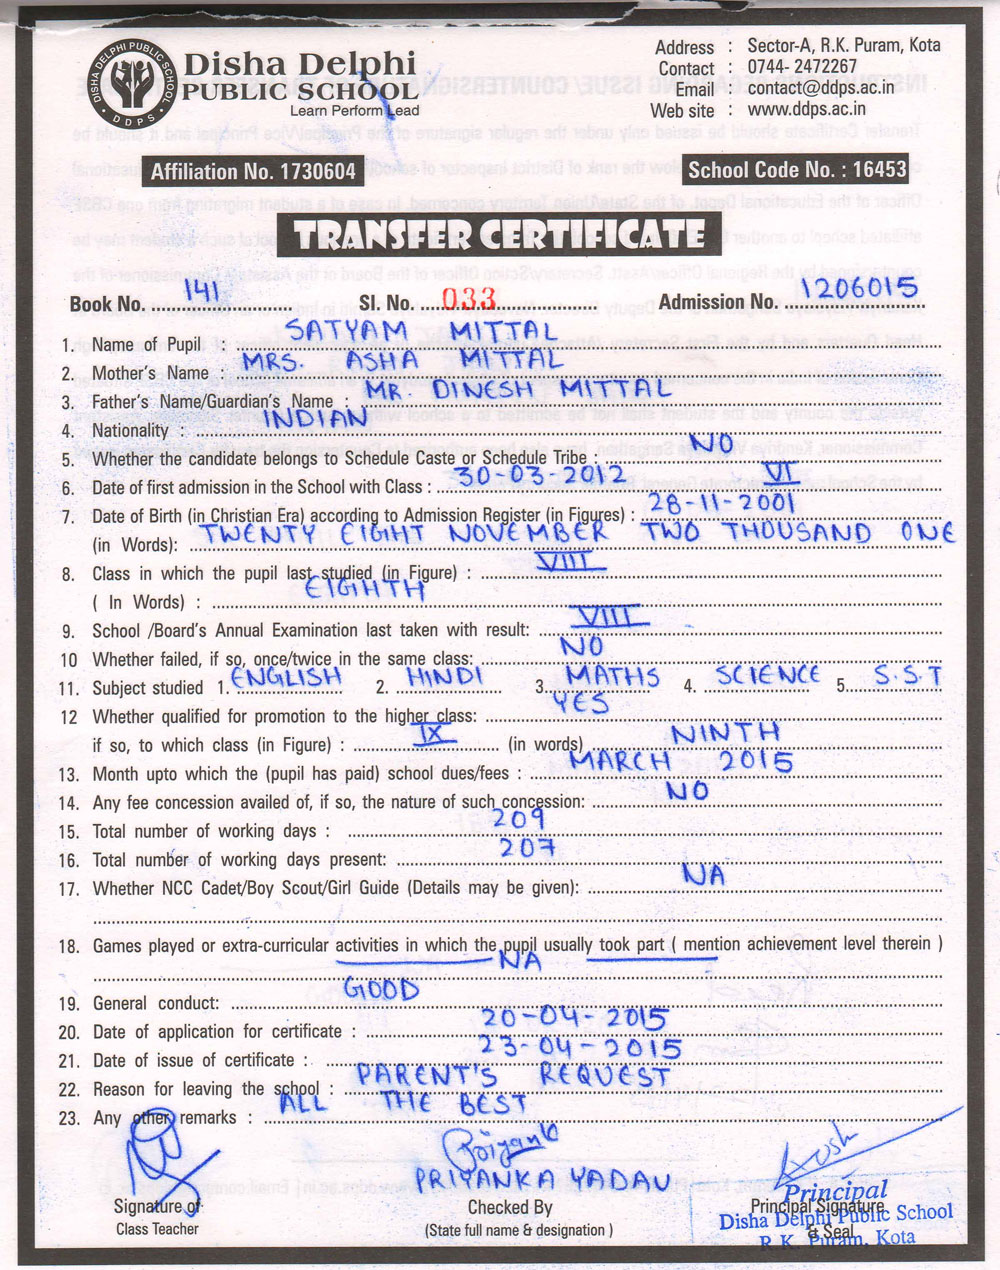 DISHA DELPHI PUBLIC SCHOOL
DDPS
Disha Delphi
PUBLIC SCHOOL
Learn Perform Lead
Address : Sector-A, R.K. Puram, Kota
Contact : 0744- 2472267
Email : contact@ddps.ac.in
Web site : www.ddps.ac.in
Affiliation No. 1730604 School Code No. : 16453
TRANSFER CERTIFICATE
Book No. 141 Sl. No. 033 Admission No. 1206015
1. Name of Pupil : SATYAM MITTAL
2. Mother's Name : MRS. ASHA MITTAL
3. Father's Name/Guardian's Name : MR. DINESH MITTAL
4. Nationality : INDIAN
5. Whether the candidate belongs to Schedule Caste or Schedule Tribe : NO
6. Date of first admission in the School with Class : 30-03-2012 VI
7. Date of Birth (in Christian Era) according to Admission Register (in Figures) : 28-11-2001
(in Words): TWENTY EIGHT NOVEMBER TWO THOUSAND ONE
8. Class in which the pupil last studied (in Figure) : VIII
( In Words) : EIGHTH
9. School /Board's Annual Examination last taken with result: VIII
10 Whether failed, if so, once/twice in the same class: NO
11. Subject studied 1. ENGLISH 2. HINDI 3. MATHS 4. SCIENCE 5. S.S.T
12 Whether qualified for promotion to the higher class: YES
if so, to which class (in Figure) : IX (in words) NINTH
13. Month upto which the (pupil has paid) school dues/fees : MARCH 2015
14. Any fee concession availed of, if so, the nature of such concession: NO
15. Total number of working days : 209
16. Total number of working days present: 207
17. Whether NCC Cadet/Boy Scout/Girl Guide (Details may be given): NA
18. Games played or extra-curricular activities in which the pupil usually took part ( mention achievement level therein )
NA
19. General conduct: GOOD
20. Date of application for certificate : 20-04-2015
21. Date of issue of certificate : 23-04-2015
22. Reason for leaving the school : PARENT'S REQUEST
23. Any other remarks : ALL THE BEST
PRIYANKA YADAV
Signature of
Class Teacher
Checked By
(State full name & designation )
Principal Signature
& Seal
Principal
Disha Delphi Public School
R.K. Puram, Kota